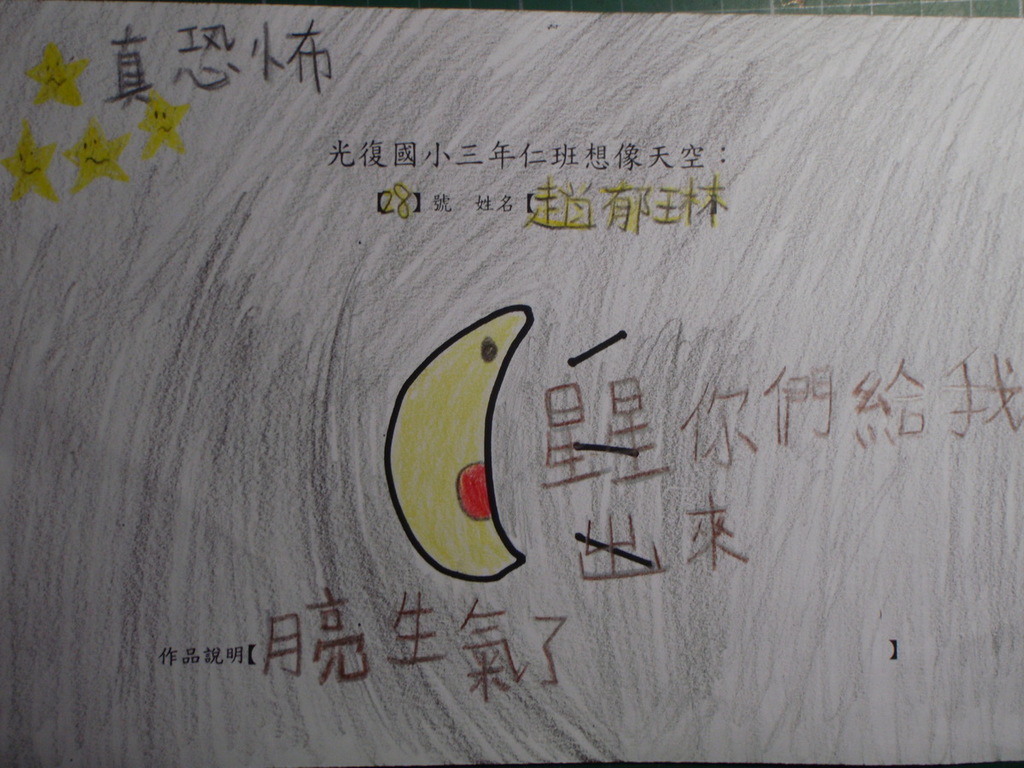 真恐怖
光復國小三年仁班想像天空：
【28】號 姓名【趙郁琳
星星你們給我
出來
作品說明【月亮生氣了】